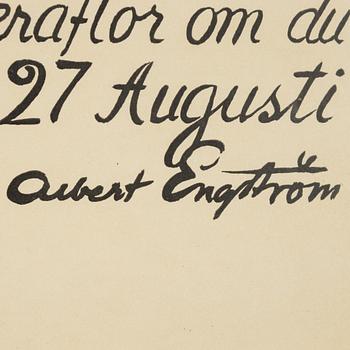 eraflor om du
27 Augusti
Albert Engström